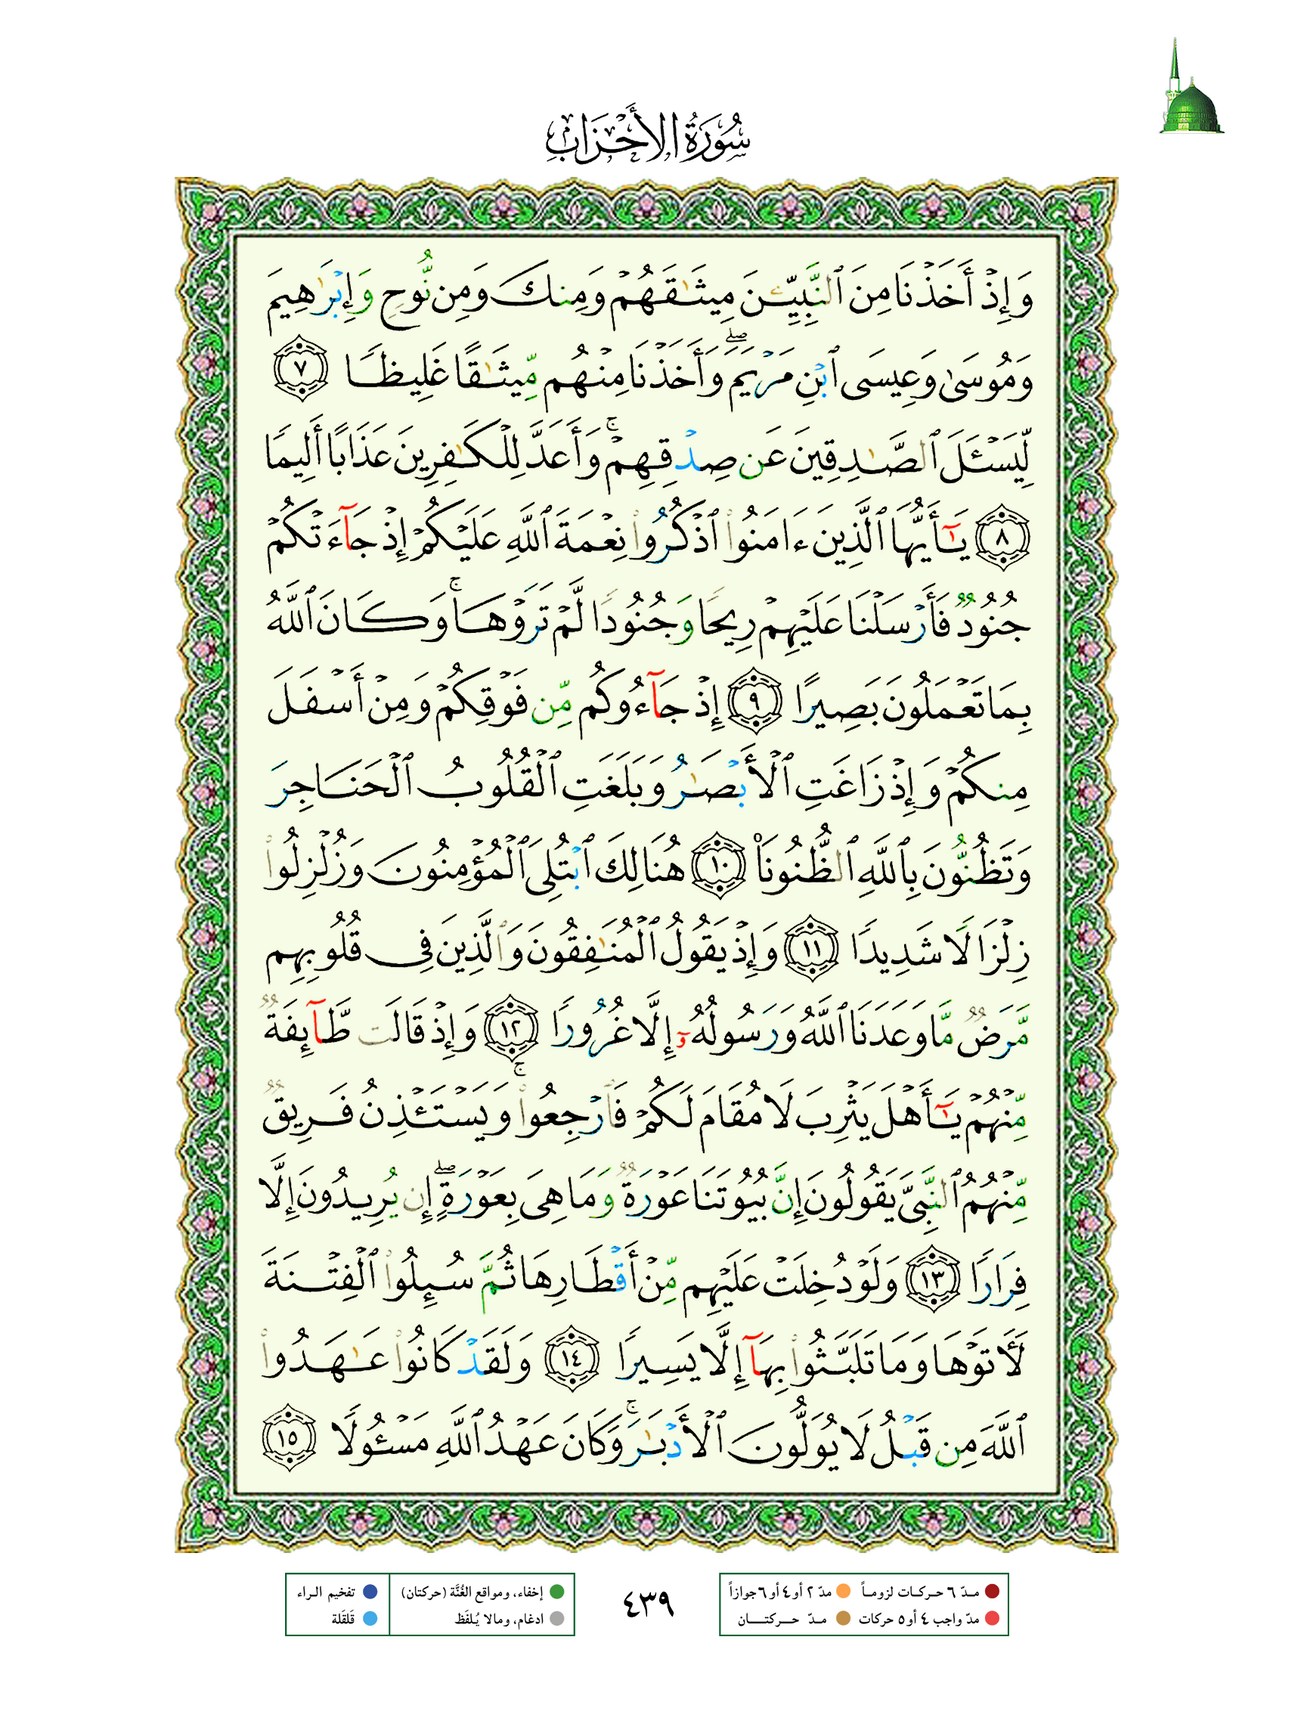 سُورَةُ الأَحْزَابِ
وَإِذْ أَخَذْنَا مِنَ ٱلنَّبِيِّـۧنَ مِيثَٰقَهُمْ وَمِنكَ وَمِن نُّوحٍ وَإِبْرَٰهِيمَ
وَمُوسَىٰ وَعِيسَى ٱبْنِ مَرْيَمَ ۖ وَأَخَذْنَا مِنْهُم مِّيثَٰقًا غَلِيظًا ٧
لِّيَسْـَٔلَ ٱلصَّٰدِقِينَ عَن صِدْقِهِمْ ۚ وَأَعَدَّ لِلْكَٰفِرِينَ عَذَابًا أَلِيمًا
٨ يَٰٓأَيُّهَا ٱلَّذِينَ ءَامَنُوا۟ ٱذْكُرُوا۟ نِعْمَةَ ٱللَّهِ عَلَيْكُمْ إِذْ جَآءَتْكُمْ
جُنُودٌ فَأَرْسَلْنَا عَلَيْهِمْ رِيحًا وَجُنُودًا لَّمْ تَرَوْهَا ۚ وَكَانَ ٱللَّهُ
بِمَا تَعْمَلُونَ بَصِيرًا ٩ إِذْ جَآءُوكُم مِّن فَوْقِكُمْ وَمِنْ أَسْفَلَ
مِنكُمْ وَإِذْ زَاغَتِ ٱلْأَبْصَٰرُ وَبَلَغَتِ ٱلْقُلُوبُ ٱلْحَنَاجِرَ
وَتَظُنُّونَ بِٱللَّهِ ٱلظُّنُونَا۠ ١٠ هُنَالِكَ ٱبْتُلِىَ ٱلْمُؤْمِنُونَ وَزُلْزِلُوا۟
زِلْزَالًا شَدِيدًا ١١ وَإِذْ يَقُولُ ٱلْمُنَٰفِقُونَ وَٱلَّذِينَ فِى قُلُوبِهِم
مَّرَضٌ مَّا وَعَدَنَا ٱللَّهُ وَرَسُولُهُۥٓ إِلَّا غُرُورًا ١٢ وَإِذْ قَالَت طَّآئِفَةٌ
مِّنْهُمْ يَٰٓأَهْلَ يَثْرِبَ لَا مُقَامَ لَكُمْ فَٱرْجِعُوا۟ ۚ وَيَسْتَـْٔذِنُ فَرِيقٌ
مِّنْهُمُ ٱلنَّبِىَّ يَقُولُونَ إِنَّ بُيُوتَنَا عَوْرَةٌ وَمَا هِىَ بِعَوْرَةٍ ۖ إِن يُرِيدُونَ إِلَّا
فِرَارًا ١٣ وَلَوْ دُخِلَتْ عَلَيْهِم مِّنْ أَقْطَارِهَا ثُمَّ سُئِلُوا۟ ٱلْفِتْنَةَ
لَـَٔاتَوْهَا وَمَا تَلَبَّثُوا۟ بِهَآ إِلَّا يَسِيرًا ١٤ وَلَقَدْ كَانُوا۟ عَٰهَدُوا۟
ٱللَّهَ مِن قَبْلُ لَا يُوَلُّونَ ٱلْأَدْبَٰرَ ۚ وَكَانَ عَهْدُ ٱللَّهِ مَسْـُٔولًا ١٥
مـدّ ٦ حـركـات لزومـاً مدّ ٢ أو ٤ أو ٦ جوازاً
مدّ واجب ٤ أو ٥ حركات مـدّ حـــركتــــان
٤٣٩
إخفاء، ومواقع الغُنَّة (حركتان) تفخيم الـراء
ادغام، ومالا يُـلفَظ قَلقَلة